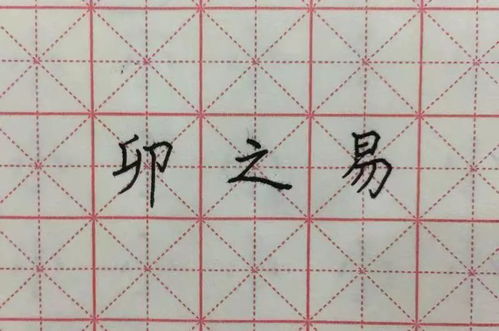 卯之易